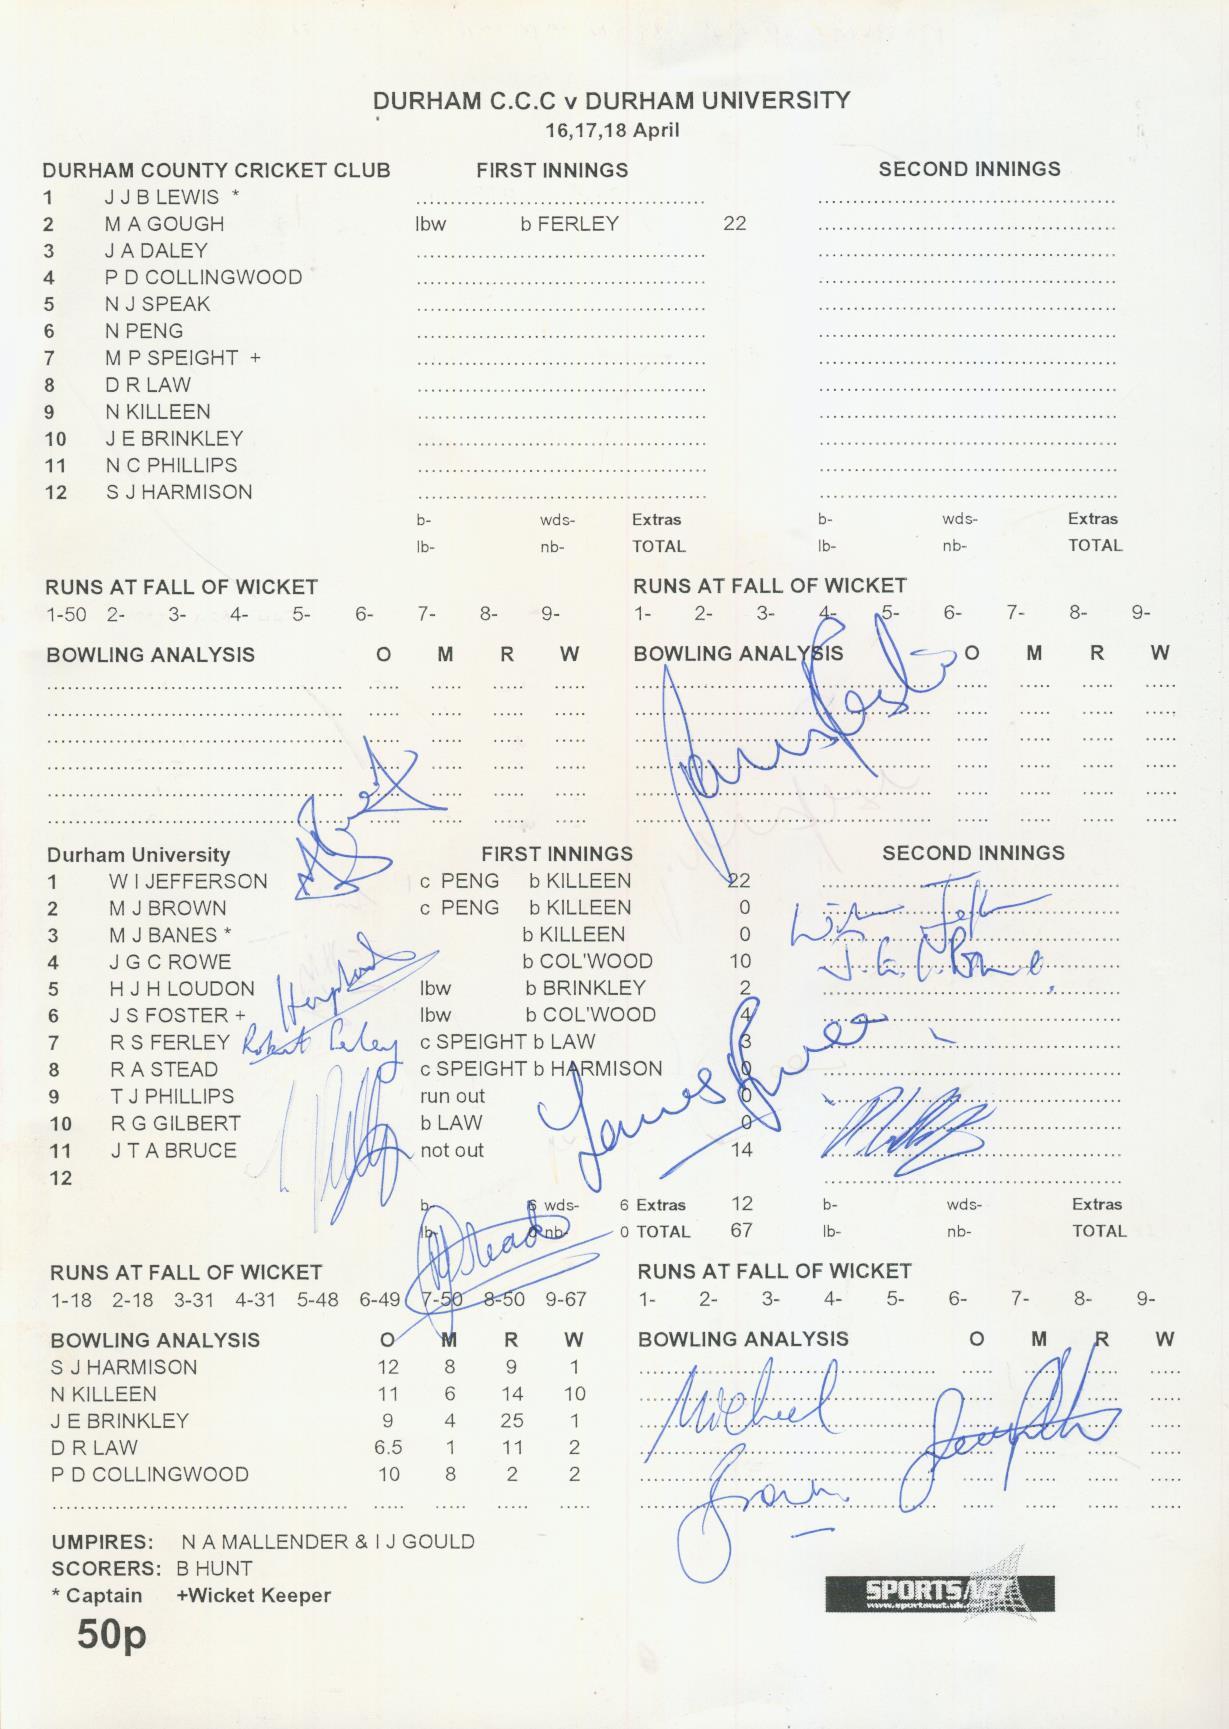 DURHAM C.C.C v DURHAM UNIVERSITY
16,17,18 April
DURHAM COUNTY CRICKET CLUB FIRST INNINGS SECOND INNINGS
1 J J B LEWIS *
2 M A GOUGH lbw b FERLEY 22
3 J A DALEY
4 P D COLLINGWOOD
5 N J SPEAK
6 N PENG
7 M P SPEIGHT +
8 D R LAW
9 N KILLEEN
10 J E BRINKLEY
11 N C PHILLIPS
12 S J HARMISON
b- wds- Extras b- wds- Extras
lb- nb- TOTAL lb- nb- TOTAL
RUNS AT FALL OF WICKET RUNS AT FALL OF WICKET
1-50 2- 3- 4- 5- 6- 7- 8- 9- 1- 2- 3- 4- 5- 6- 7- 8- 9-
BOWLING ANALYSIS O M R W BOWLING ANALYSIS O M R W
Durham University FIRST INNINGS SECOND INNINGS
1 W I JEFFERSON c PENG b KILLEEN 22
2 M J BROWN c PENG b KILLEEN 0
3 M J BANES * b KILLEEN 0
4 J G C ROWE b COL'WOOD 10
J.G.C. Rowe
5 H J H LOUDON lbw b BRINKLEY 2
6 J S FOSTER + lbw b COL'WOOD 4
7 R S FERLEY Robert Ferley c SPEIGHT b LAW 3
8 R A STEAD c SPEIGHT b HARMISON 0
9 T J PHILLIPS run out 0
James Bruce
10 R G GILBERT b LAW 0
11 J T A BRUCE not out 14
12
b- 6 wds- 6 Extras 12 b- wds- Extras
lb- 0 nb- 0 TOTAL 67 lb- nb- TOTAL
RUNS AT FALL OF WICKET RUNS AT FALL OF WICKET
1-18 2-18 3-31 4-31 5-48 6-49 7-50 8-50 9-67 1- 2- 3- 4- 5- 6- 7- 8- 9-
BOWLING ANALYSIS O M R W BOWLING ANALYSIS O M R W
S J HARMISON 12 8 9 1
N KILLEEN 11 6 14 10
J E BRINKLEY 9 4 25 1
D R LAW 6.5 1 11 2
P D COLLINGWOOD 10 8 2 2
Michael
Brown
UMPIRES: N A MALLENDER & I J GOULD
SCORERS: B HUNT
* Captain +Wicket Keeper
50p
SPORTS.NET